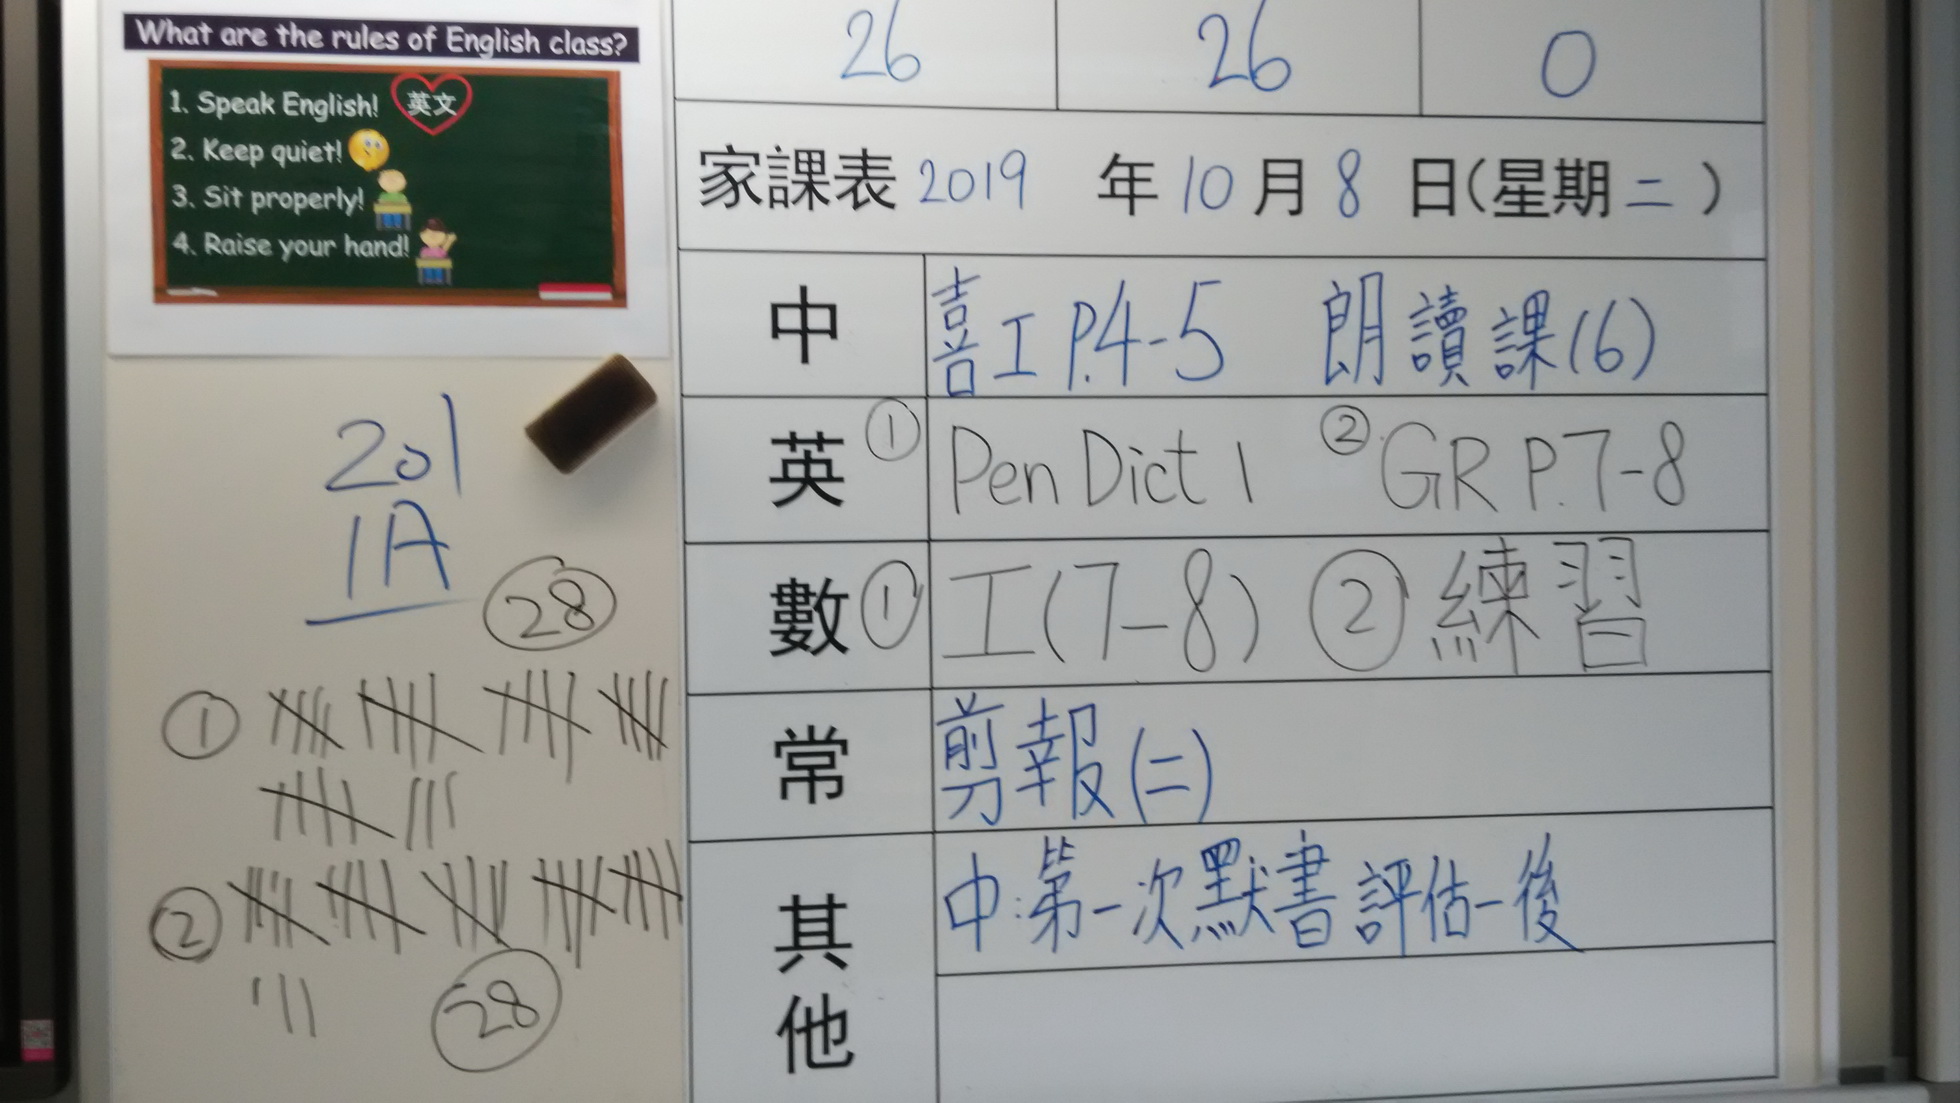 What are the rules of English class?
1. Speak English! 英文
2. Keep quiet!
3. Sit properly!
4. Raise your hand!
201
1A
28
①
②
28
26 26 0
家課表 2019 年 10 月 8 日(星期二)
中 喜工 P.4-5 朗讀課(6)
英 ① Pen Dict 1 ② GR P.7-8
數 ① 工(7-8) ② 練習
常 剪報(二)
其他 中:第一次默書評估一後